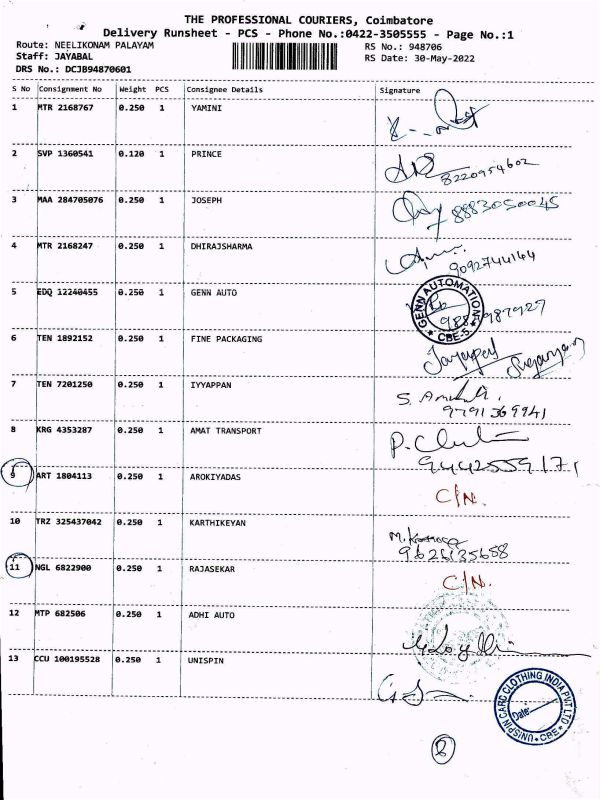 THE PROFESSIONAL COURIERS, Coimbatore
Delivery Runsheet - PCS - Phone No.:0422-3505555 - Page No.:1
Route: NEELIKONAM PALAYAM RS No.: 948706
Staff: JAYABAL RS Date: 30-May-2022
DRS No.: DCJB94870601
S No Consignment No Weight PCS Consignee Details Signature
1 MTR 2168767 0.250 1 YAMINI
2 SVP 1360541 0.120 1 PRINCE
8220954602
3 MAA 284705076 0.250 1 JOSEPH 8883050045
4 MTR 2168247 0.250 1 DHIRAJSHARMA
9092744144
5 EDQ 12240455 0.250 1 GENN AUTO
GENN AUTOMATION
CBE-5.
6 TEN 1892152 0.250 1 FINE PACKAGING
Jayapal
7 TEN 7201250 0.250 1 IYYAPPAN
9791369941
8 KRG 4353287 0.250 1 AMAT TRANSPORT
9442559171
9 ART 1804113 0.250 1 AROKIYADAS
C/N.
10 TRZ 325437042 0.250 1 KARTHIKEYAN
9626135658
11 NGL 6822900 0.250 1 RAJASEKAR
C/N.
12 MTP 682506 0.250 1 ADHI AUTO
13 CCU 100195528 0.250 1 UNISPIN
UNISPIN CARD CLOTHING INDIA PVT LTD
Date:
CBE